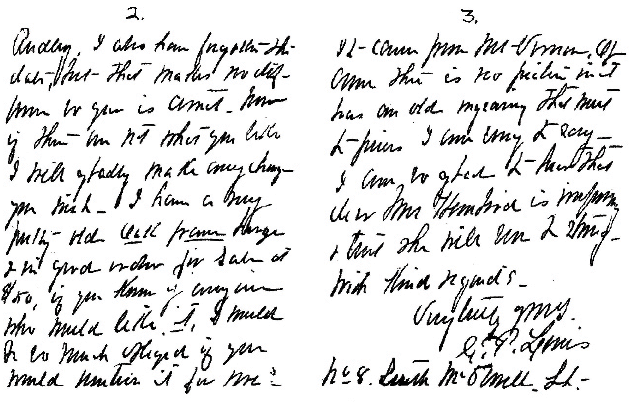 2.
I also have forgotten the
date, but that makes no dif-
as yours is correct. Now
if these are not what you like
I will gladly make any change
you wish – I have a very
pretty old frame
in good order for sale at
$50, if you know of anyone
who would like it, I would
be so much obliged if you
would mention it for me –
3.
It came from Mt. Vernon, of
course there is no picture in it
has an old that must
I am sorry to say –
I am so glad to hear that
dear Mrs. is improving
& trust she will soon be strong –
With kind regards –
Very truly yours.
Lewis
No 8. South McDowell. St –